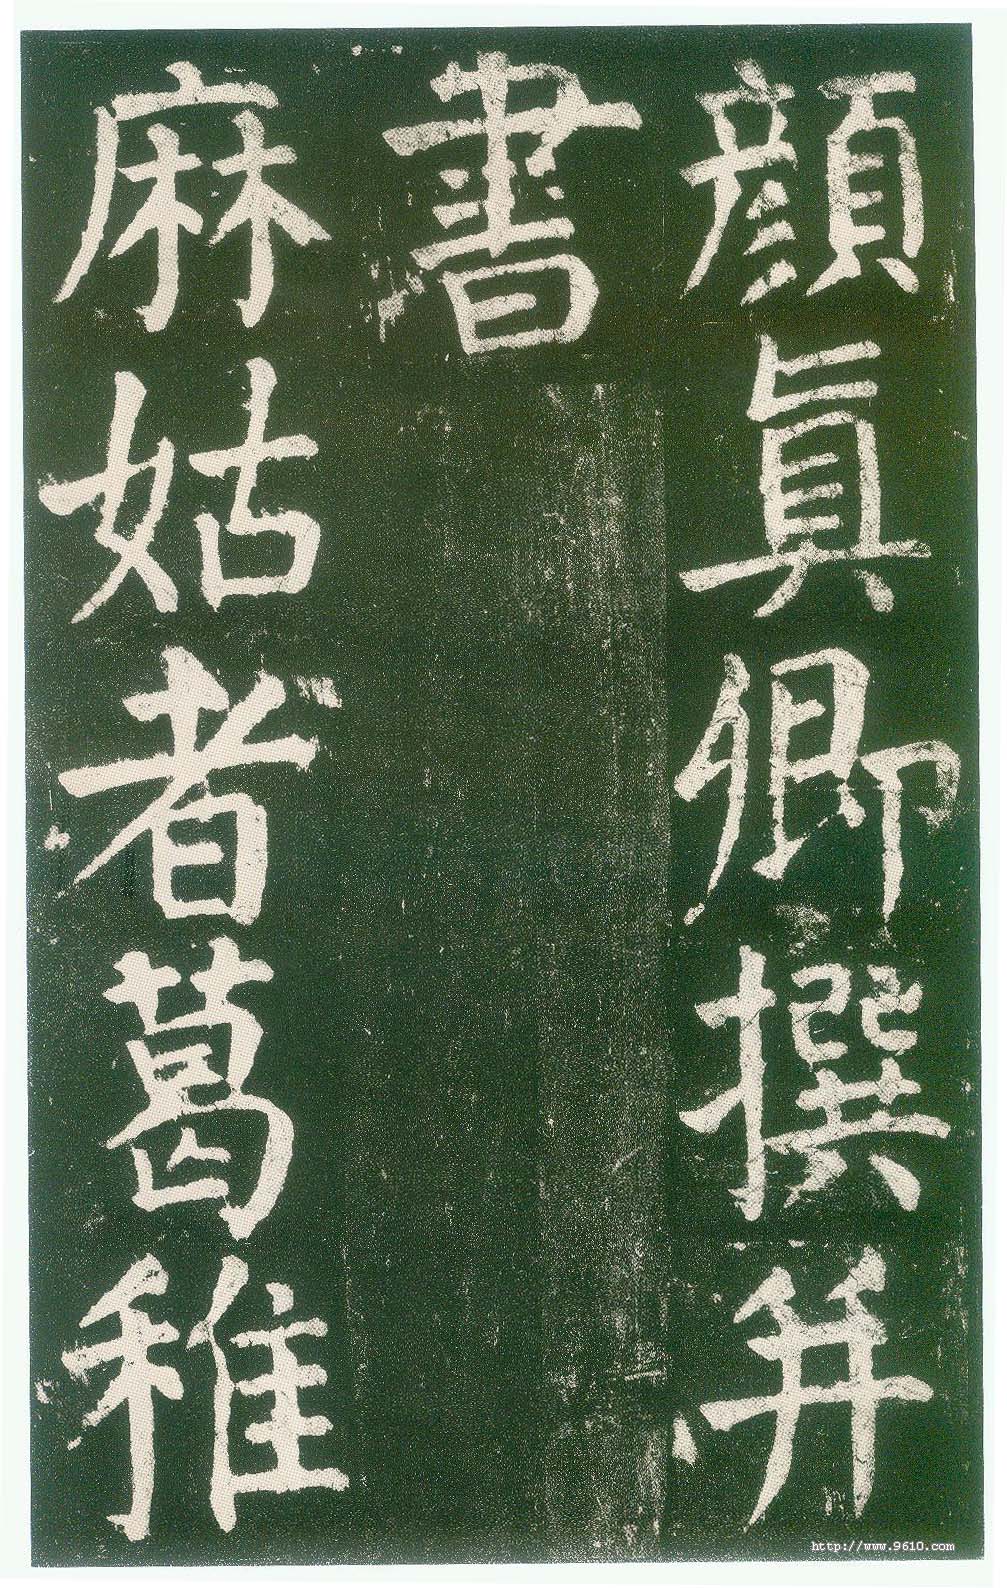 顔真卿撰并
書
麻姑者葛稚
http://www.9610.com